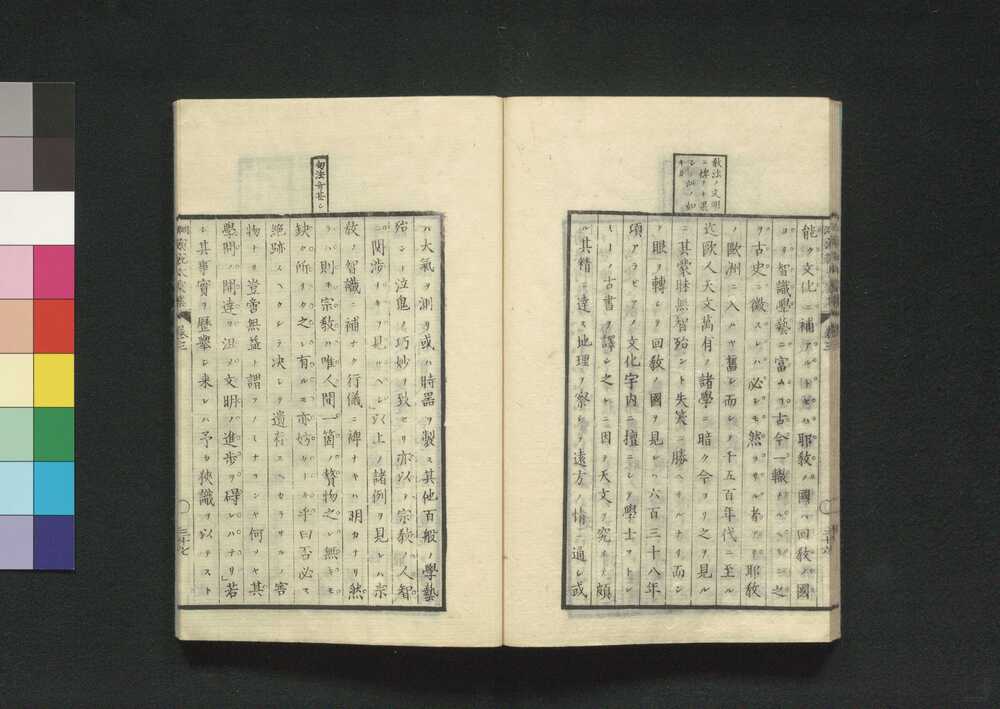 教法ノ文明
能ク文化ニ補アルトセハ耶教ノ國ハ回教ノ國
ヨリ智識學藝ニ富ムコ古今一轍ナルヘシ之
ヲ古史ニ徴スレハ必シモ然ラサル者アリ耶教
ノ歐洲ニ入ルヤ舊シ而シテ千五百年代ニ至ル
迄歐人天文萬有ノ諸學ニ暗ク今ヨリ之ヲ見ル
ニ其蒙昧無智殆ント失笑ニ勝ヘサルナリ而シ
ノ眼ヲ轉シテ回教ノ國ヲ見レハ六百三十八年
項アラビアノ文化宇内ニ擅ニシテ學士ヲトシ
古書ヲ譯シ之ニ因テ天文ヲ究メ頗
ル其精ニ達ス地理ヲ察シテ遠方ノ情ニ通シ或
卷三
句法奇甚シ
ハ大氣ヲ測リ或ハ時器ヲ製ス其他百般ノ學藝
殆ント泣鬼ノ巧妙ヲ致セリ亦以テ宗教ノ人智
ニ関渉ナキヲ見ルヘシ以上ノ諸例ヲ見レハ宗
教ノ智識ニ補ナク行儀ニ裨ナキハ明カナリ然
ラハ則チ宗教ハ唯人間一箇ノ贅物之レ無キモ
缺ク所ナク之レ有ルモ亦妨ケナキ乎曰否必ス
絶跡スヘクシテ决シテ遺存スヘカラサルノ害
物ナリ豈啻無益ト謂フノミナランヤ何ソヤ其
學問ノ開達ヲ沮ミ文明ノ進歩ヲ碍レハナリ若
シ其事實ヲ歴擧シ来レハ予カ狭識ヲ以テスト
卷三
三十七